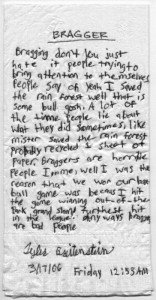 BRAGGER
Bragging don't you just
hate it people trying to
bring attention to themselves
people say oh yeah I saved
the rain forest well that is
some bull gosh. A lot of
the time people lie about
what they did sometimes, like
mister saved the rain forest
probably recycled 1 sheet of
Paper. Braggers are horrible
People I mean, well I was the
reason that we won our base
ball game was because I hit
the game winning out-of-the
Park grand slam furthest hit
in the league. Any ways braggers
are bad People
3/17/06 Friday 12:35 AM